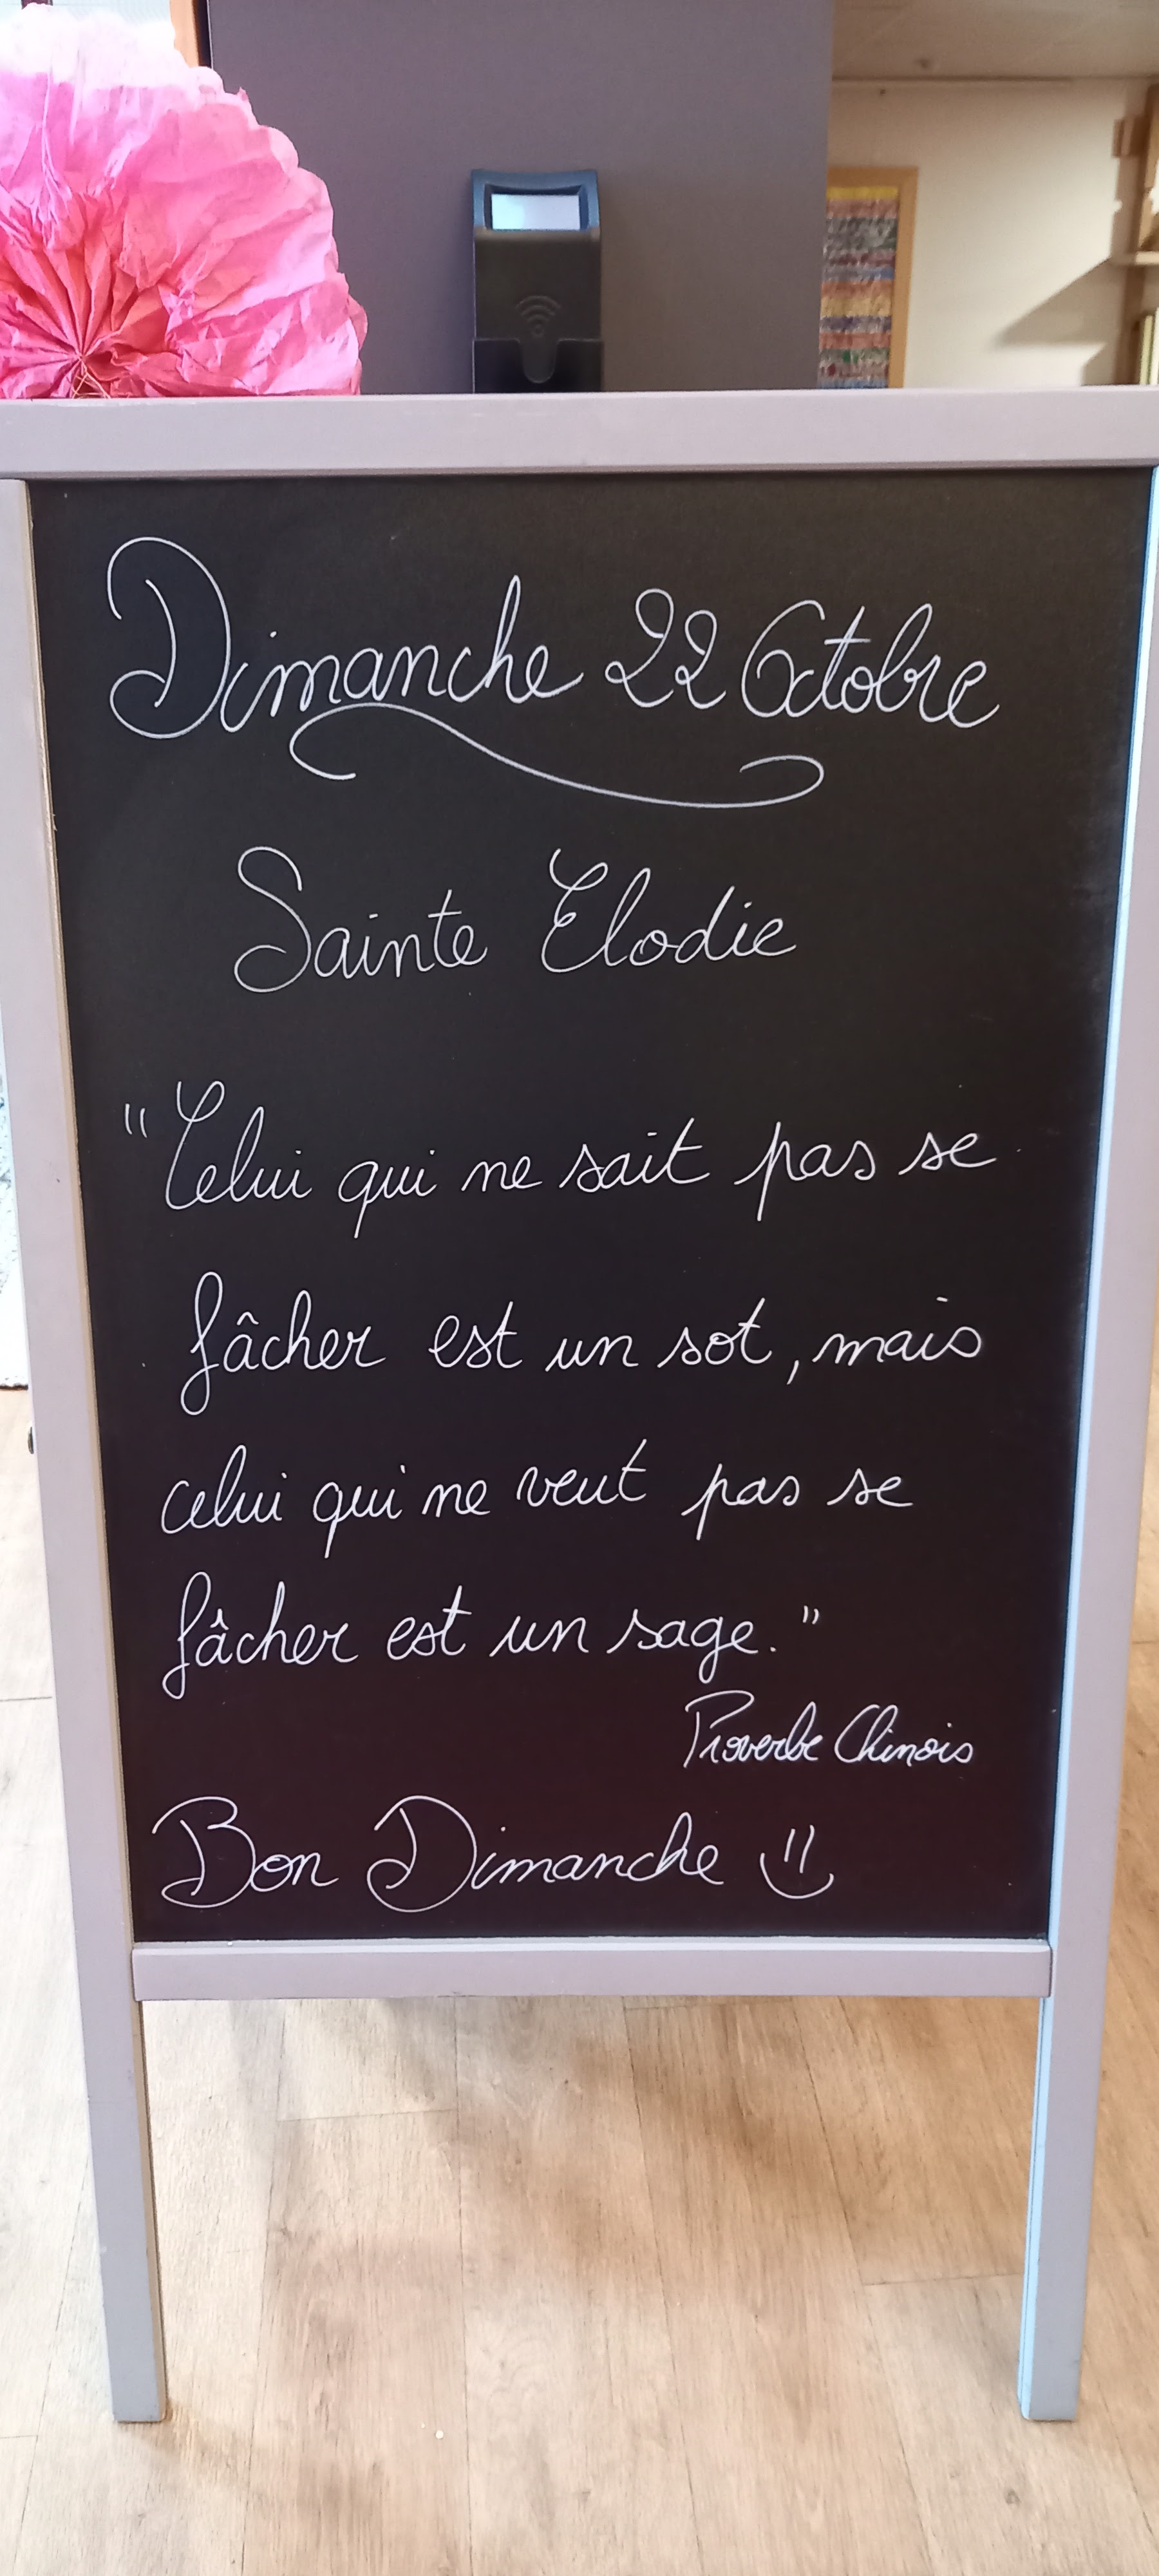 Dimanche 22 Octobre
Sainte Elodie
"Celui qui ne sait pas se
fâcher est un sot, mais
celui qui ne veut pas se
fâcher est un sage."
Proverbe Chinois
Bon Dimanche